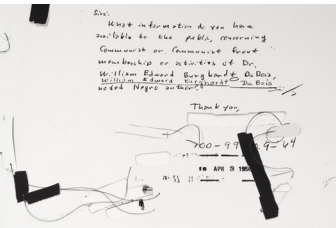 Sirs:
What information do you have
available to the public, concerning
Communist or Communist front
membership or activities of Dr.
William Edward Burghardt DuBois,
William Edward Burghardt Du Bois
noted Negro author?
Thank you,
100-99
APR 3 195